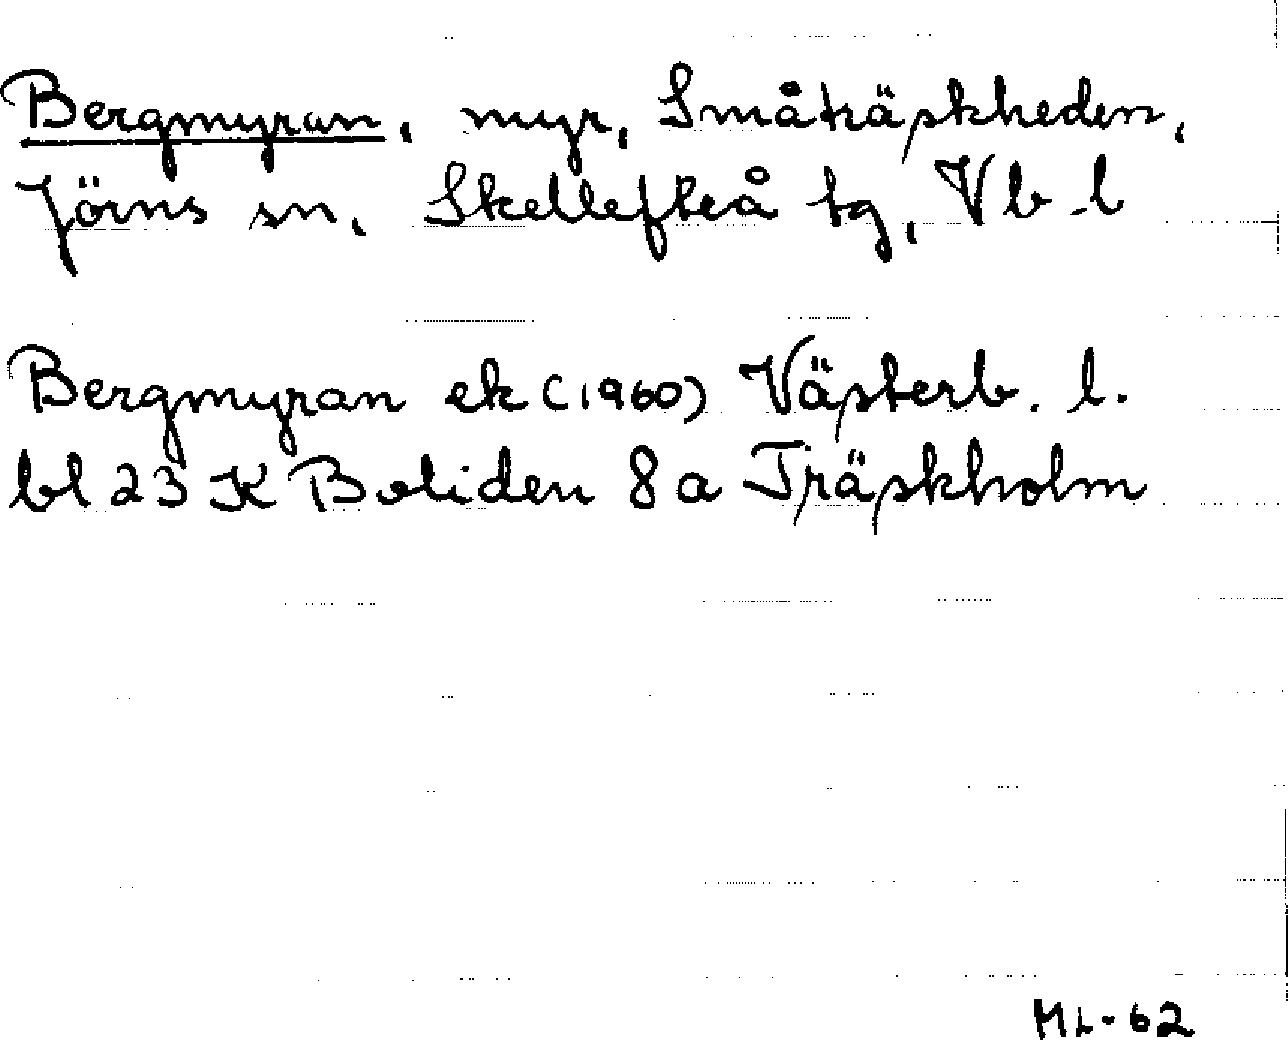 Bergmyran, myr, Småträskheden,
Jörns sn, Skellefteå tg, Vb. l
Bergmyran ek (1960) Västerb. l.
bl 23 K Boliden 8 a Träskholm
ML-62